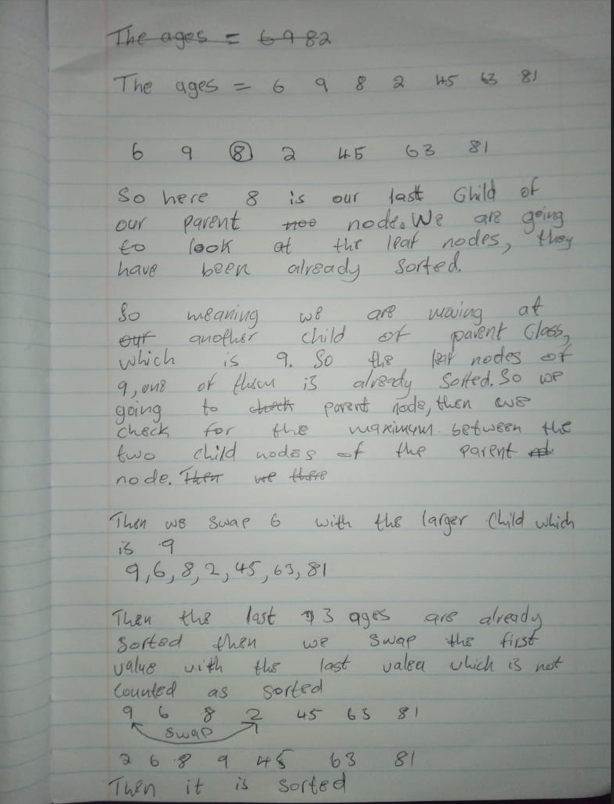 The ages = 6 9 82
The ages = 6 9 8 2 45 63 81
6 9 8 2 45 63 81
So here 8 is our last Child of
our parent noo node. We are going
to look at the leaf nodes, they
have been already sorted.
So meaning we are moving at
our another child of parent Class,
which is 9. So the leaf nodes of
9, one of them is already sorted. So we
going to check parent node, then we
check for the maximum between the
two child nodes of the parent
node. Then we there
Then we swap 6 with the larger Child which
is 9
9, 6, 8, 2, 45, 63, 81
Then the last 3 ages are already
sorted then we swap the first
value with the last valea which is not
Counted as sorted
9 6 8 2 45 63 81
swap
2 6 8 9 45 63 81
Then it is sorted